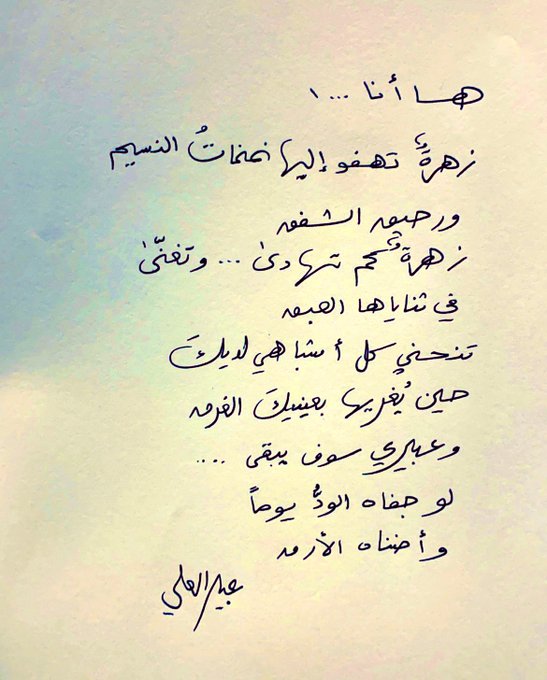 هـا أنا ... !
زهرةٌ تهفو إليها نمنماتُ النسيم
ورحيق الشفق
زهرةٌ كم تهادىٰ ... وتغنّىٰ
في ثناياها العبق
تنحني كل أشباهي لديكَ
حين يُغريها بعينيكَ الغرق
وعبيري سوف يبقى ....
لو جفاه الودُّ يوماً
وأضناه الأرق
عبير العلي